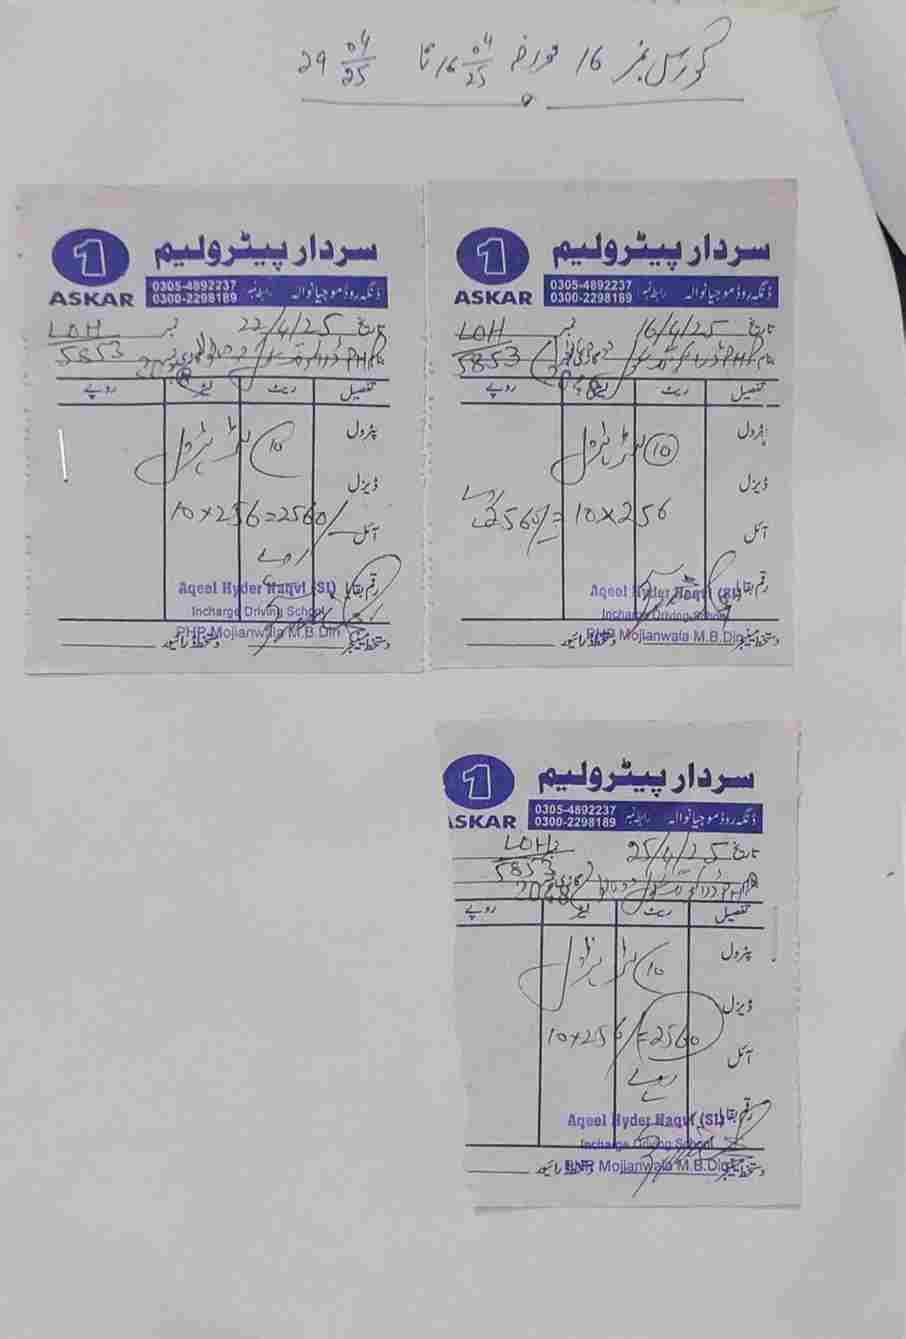 کورس نمبر 16 مورخہ 16 04/25 تا 29 04/25
1 سردار پیٹرولیم
ASKAR
0305-4892237
0300-2298189
رابطہ نمبر ڈنگہ روڈ موجیانوالہ
تاریخ 22/4/25 نمبر LOH
5853
بنام PHP گاڑی نمبر
تفصیل ریٹ لیٹر روپے
پٹرول 10 لیٹر پٹرول
ڈیزل
10×256=2560/
آئل
روپے
رقم بقایا
Aqeel Hyder Naqvi (SI)
Incharge Driving School
PHP Mojianwala M.B.Din
دستخط منیجر دستخط ڈرائیور
1 سردار پیٹرولیم
ASKAR
0305-4892237
0300-2298189
رابطہ نمبر ڈنگہ روڈ موجیانوالہ
تاریخ 16/4/25 نمبر LOH
5853
بنام PHP گاڑی نمبر
تفصیل ریٹ لیٹر روپے
پٹرول 10 لیٹر پٹرول
ڈیزل
10×256 =2560/
روپے
آئل
رقم بقایا
Aqeel Hyder Naqvi (SI)
Incharge Driving School
PHP Mojianwala M.B.Din
دستخط منیجر دستخط ڈرائیور
1 سردار پیٹرولیم
ASKAR
0305-4892237
0300-2298189
رابطہ نمبر ڈنگہ روڈ موجیانوالہ
تاریخ 25/4/25 LOH
5853
بنام PHP گاڑی نمبر
تفصیل ریٹ لیٹر روپے
پٹرول 10 لیٹر پٹرول
ڈیزل
10×256/=2560
آئل
روپے
رقم بقایا
Aqeel Hyder Naqvi (SI)
Incharge Driving School
PHP Mojianwala M.B.Din
دستخط منیجر دستخط ڈرائیور